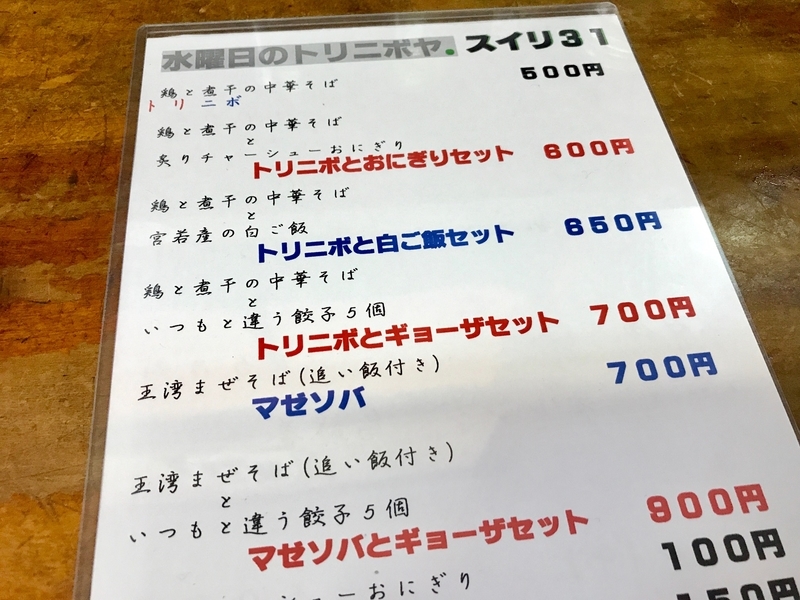 水曜日のトリニボヤ. スイリ31
鶏と煮干の中華そば 500円
トリニボ
鶏と煮干の中華そば
と
炙りチャーシューおにぎり
トリニボとおにぎりセット 600円
鶏と煮干の中華そば
と
宮若産の白ご飯
トリニボと白ご飯セット 650円
鶏と煮干の中華そば
と
いつもと違う餃子5個
トリニボとギョーザセット 700円
王湾まぜそば(追い飯付き) 700円
マゼソバ
王湾まぜそば(追い飯付き)
と
いつもと違う餃子5個
マゼソバとギョーザセット 900円
100円
シューおにぎり 150円